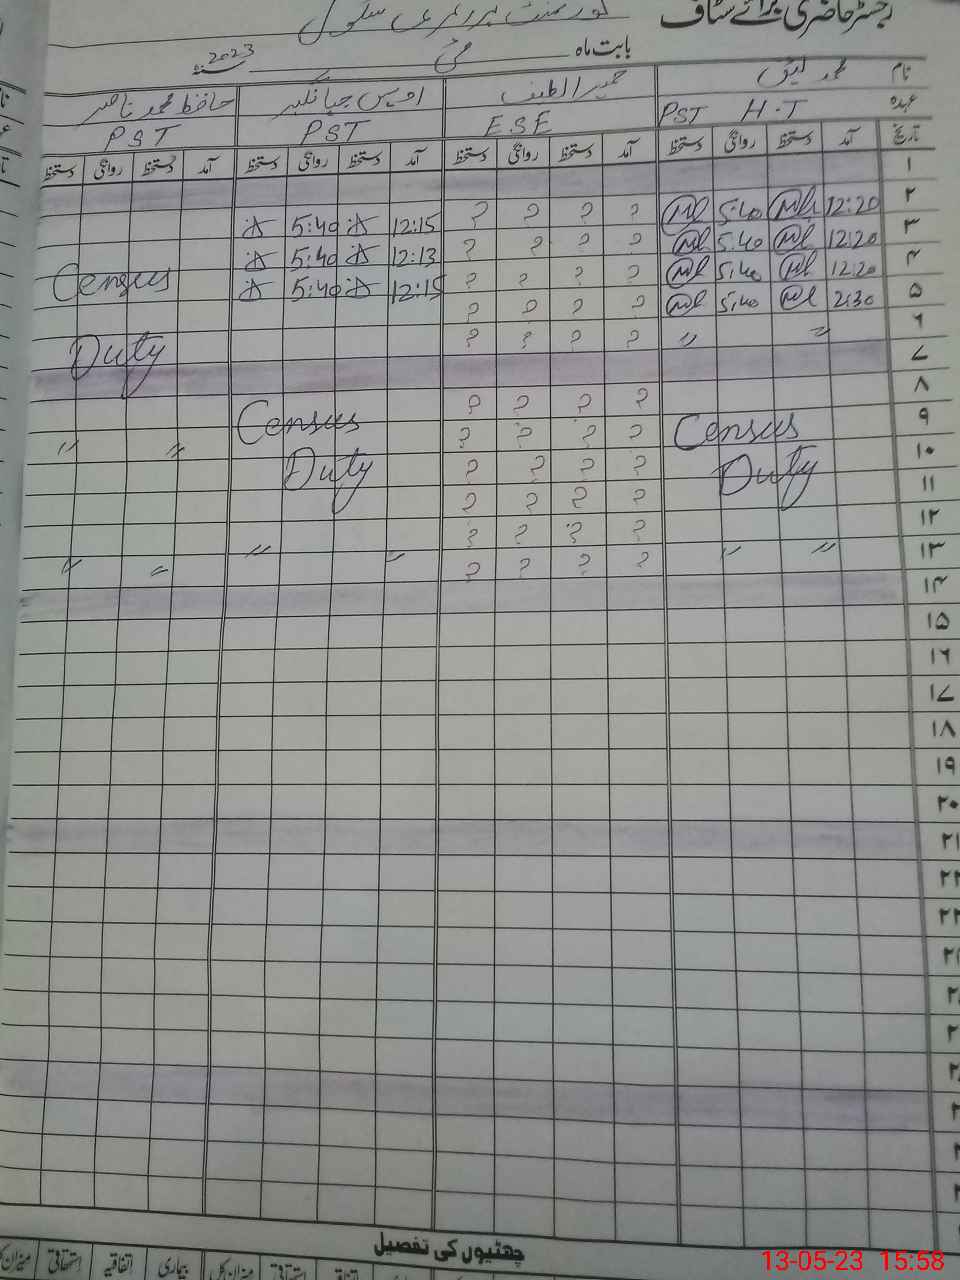 رجسٹر حاضری برائے سٹاف گورنمنٹ پرائمری سکول
بابت ماہ مئی 2023
نام حمیرا الطیف اویس جہانگیر حافظ محمد ناصر
عہدہ PST H.T ESE PST PST
تاریخ آمد دستخط روانگی دستخط آمد دستخط روانگی دستخط آمد دستخط روانگی دستخط آمد دستخط روانگی دستخط
۱
۲ 12:20 5:40 ? ? ? ? 12:15 5:40
۳ 12:20 5:40 ? ? ? ? 12:13 5:40
۴ 12:20 5:40 ? ? ? ? 12:15 5:40 Census
۵ 2:30 5:40 ? ? ? ?
۶ " " ? ? ? ? Duty
۷
۸ ? ? ? ?
۹ Census ? ? ? ? Census " "
۱۰ Duty ? ? ? ? Duty
۱۱ ? ? ? ?
۱۲ ? ? ? ?
۱۳ " " ? ? ? ? " " " "
۱۴
۱۵
۱۶
۱۷
۱۸
۱۹
۲۰
۲۱
۲۲
۲۳
چھٹیوں کی تفصیل
بیماری اتفاقیہ استحقاقی میزان کل
13-05-23 15:58